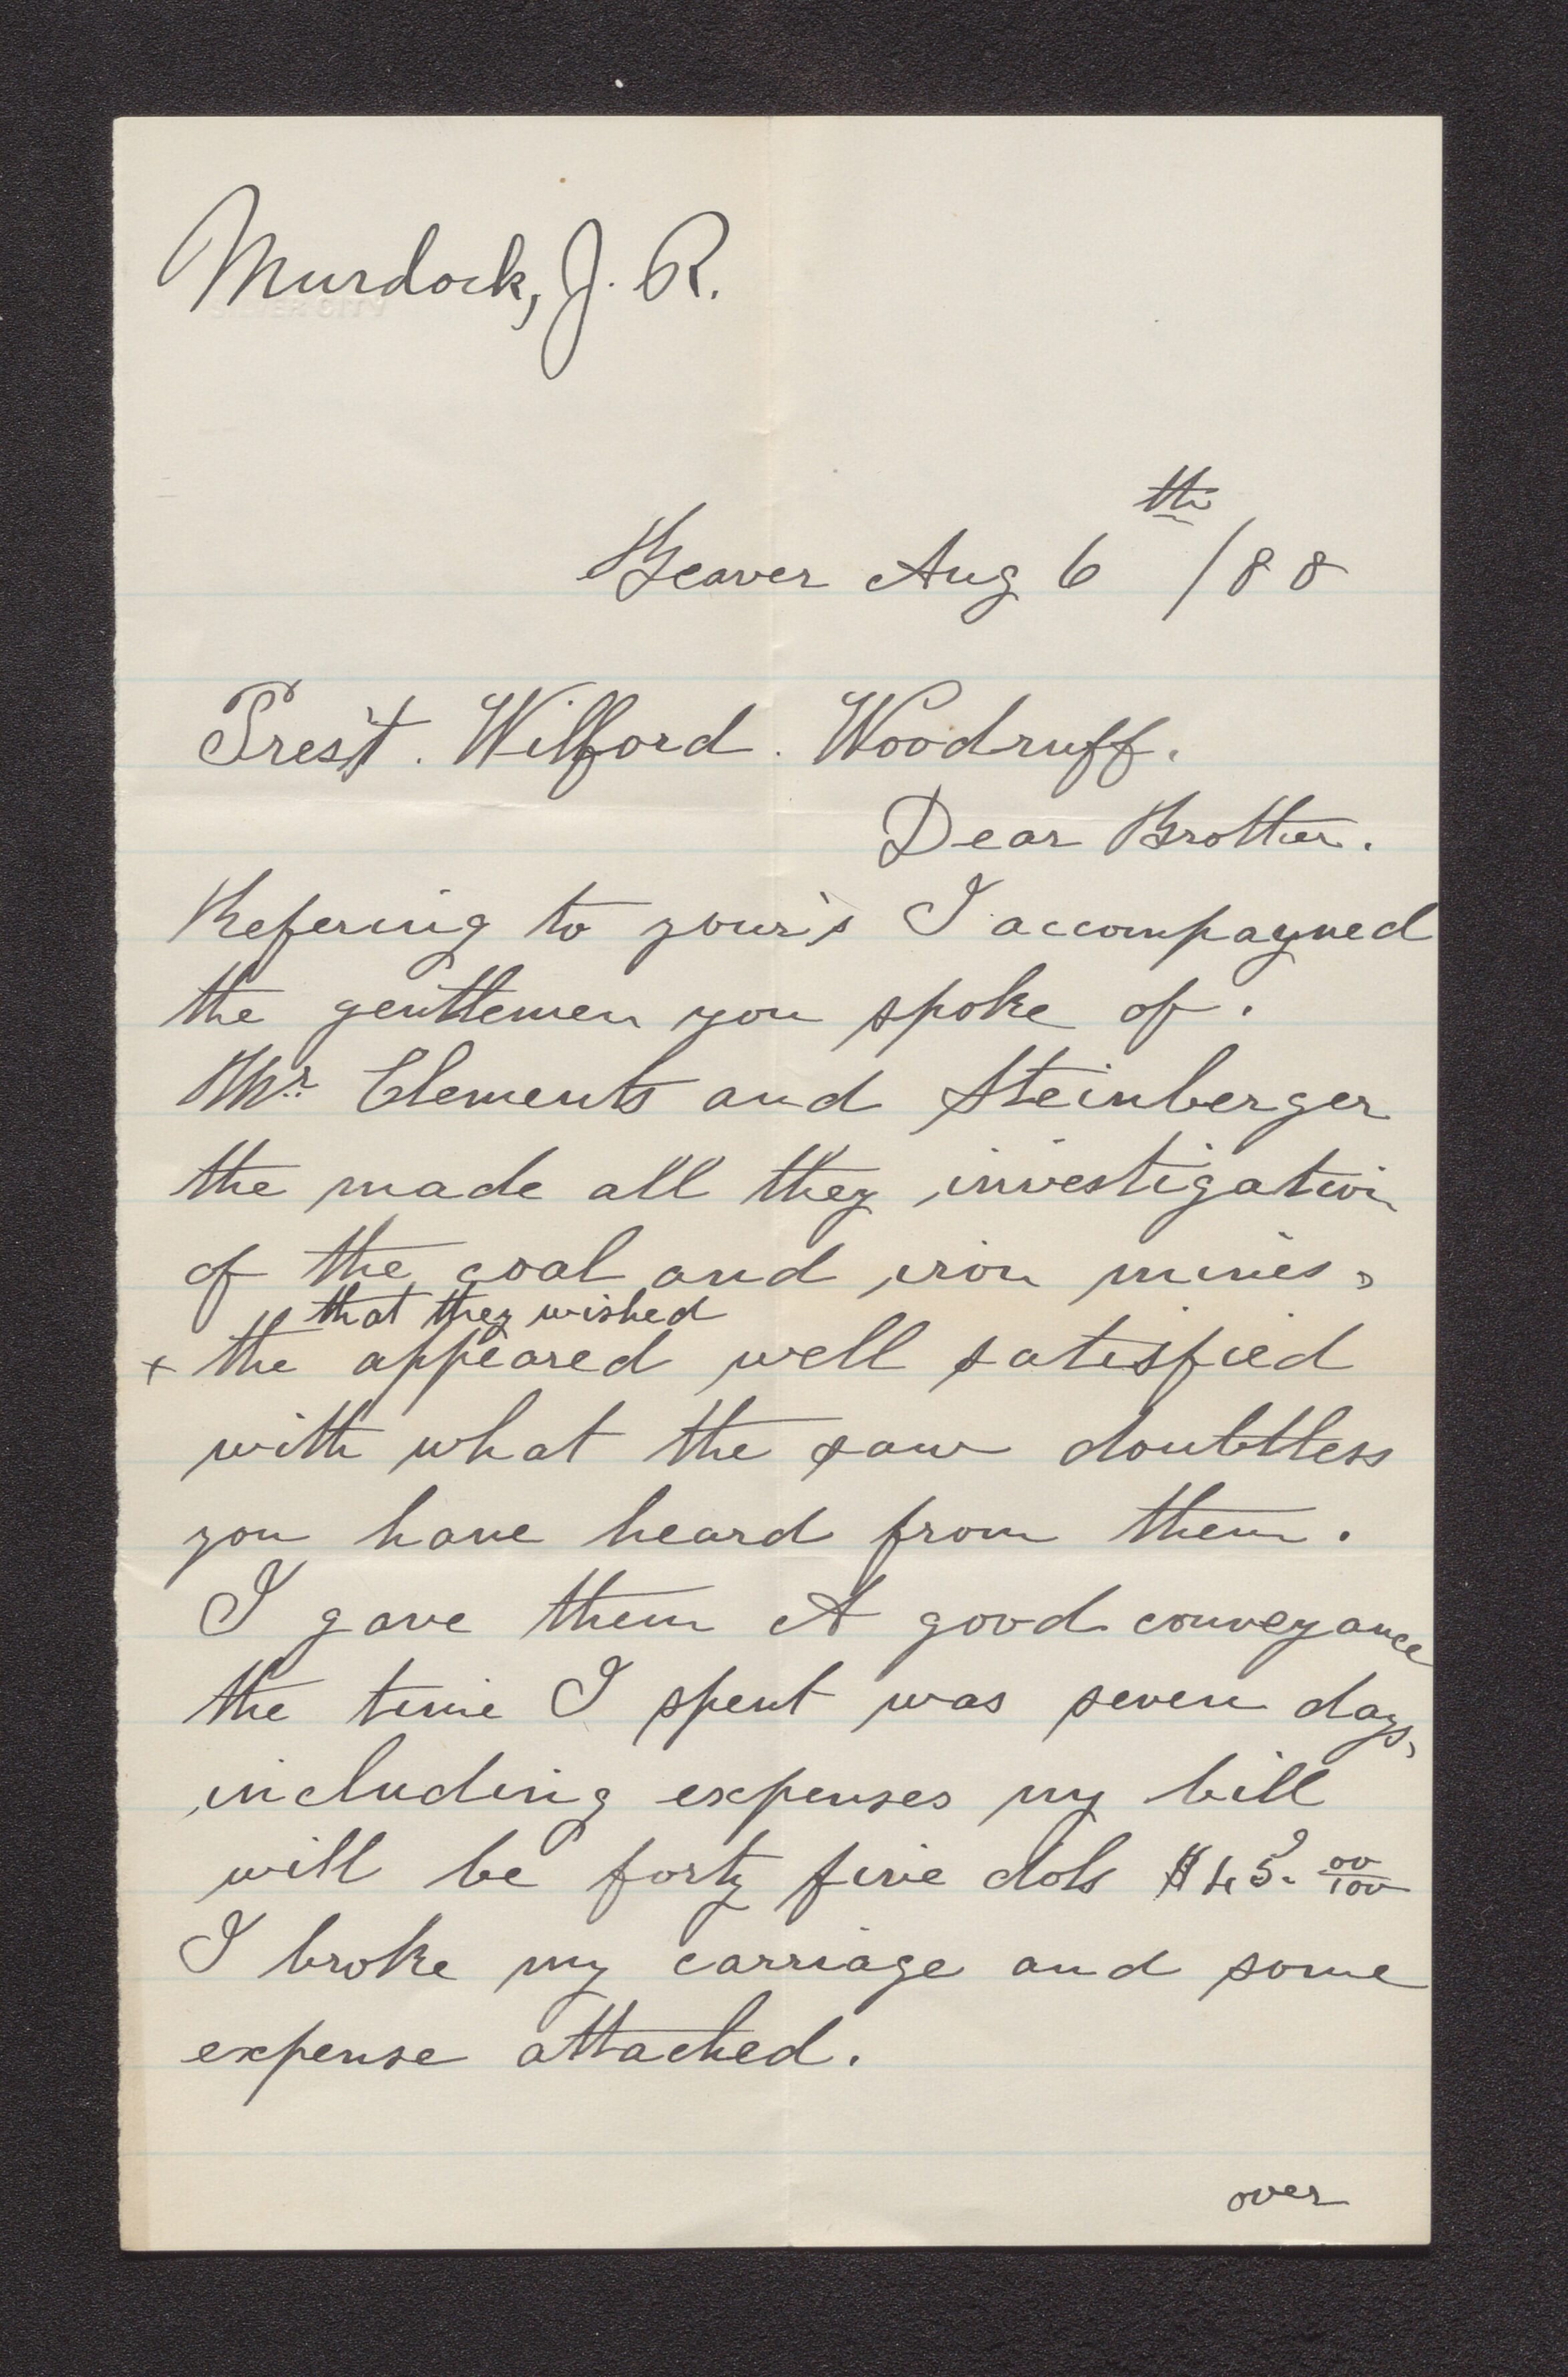 Murdock, J. R.
Beaver Aug 6th /88
Prest. Wilford. Woodruff.
Dear Brother.
Refering to your's I accompayned
the gentlemen you spoke of.
Mr. Clements and Steinberger
the made all they investigation
of the coal and iron mines,
that they wished
+ the appeared well satisfied
with what the saw doubtless
you have heard from them.
I gave them A good conveyance
the time I spent was seven days,
including expenses my bill
will be forty five dols $45. 00/100
I broke my carriage and some
expense attached.
over